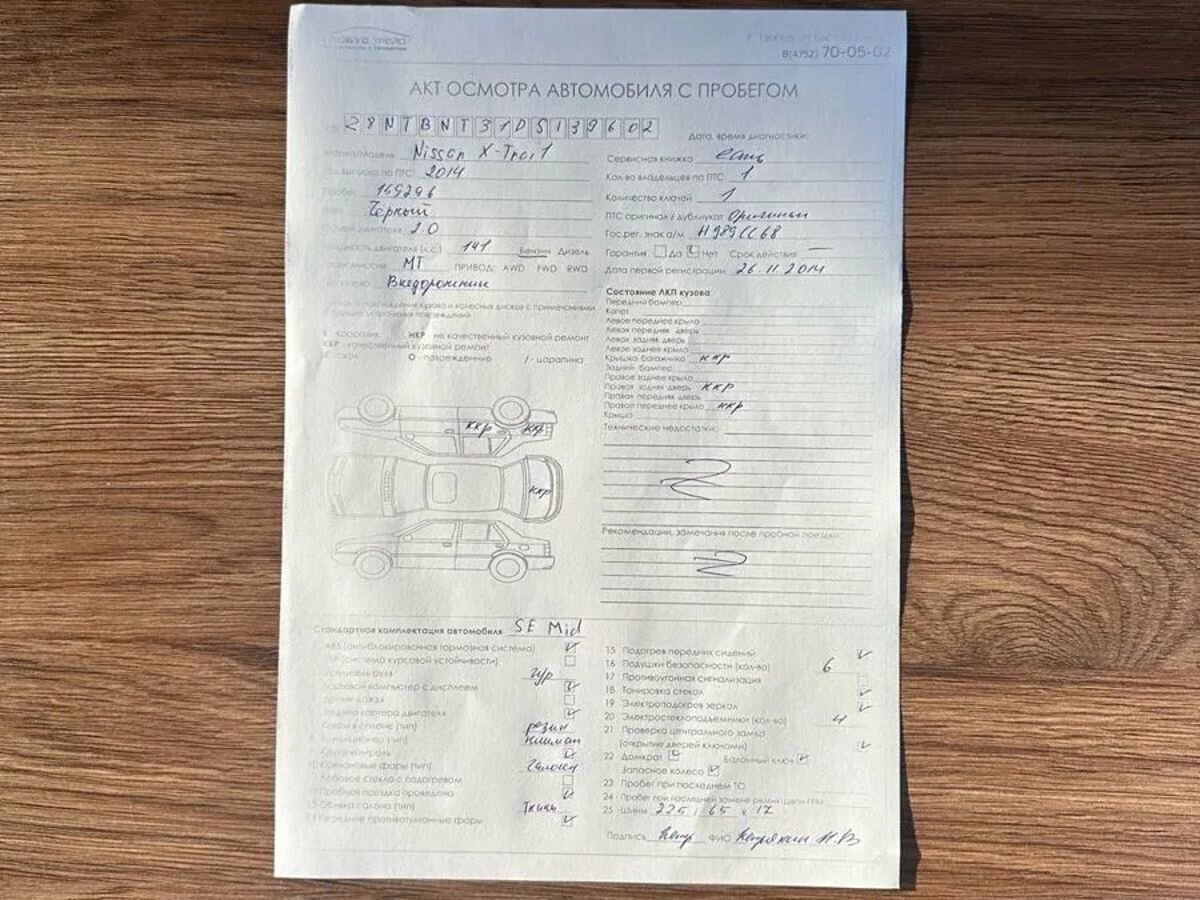 8(4752) 70-05-02
АКТ ОСМОТРА АВТОМОБИЛЯ С ПРОБЕГОМ
Z8NTBNT31DS139602
Дата, время диагностики:
Марка/Модель Nissan X-Trail
выпуска по ПТС 2014
Пробег 169296
Чёрный
двигателя 2.0
двигателя (л.с.) 141 Бензин Дизель
МТ ПРИВОД: AWD FWD RWD
кузова Внедорожник
Сервисная книжка есть
Кол-во владельцев по ПТС 1
Количество ключей 1
ПТС оригинал / дубликат Оригинал
Гос.рег. знак а/м Н989СС68
Гарантия Да Нет Срок действия —
Дата первой регистрации 26.11.2014
кузова и колесных дисков с примечаниями
НКР - не качественный кузовной ремонт
ККР - качественный кузовной ремонт
О - повреждение / - царапина
Состояние ЛКП кузова
Передний бампер
Капот
Левое переднее крыло
Левая передняя дверь
Левая задняя дверь
Левое заднее крыло
Крышка багажника ккр
Задний бампер
Правое заднее крыло
Правая задняя дверь ккр
Правая передняя дверь
Правое переднее крыло ккр
Крыша
Технические недостатки:
Z
Рекомендации, замечания после пробной поездки:
Z
ккр ккр
ккр
Стандартная комплектация автомобиля SE Mid
ABS (антиблокировочная тормозная система)
(система курсовой устойчивости)
Усилитель руля гур
Бортовой компьютер с дисплеем
Датчик дождя
Защита картера двигателя
Ковры в салоне (тип) резин
Кондиционер (тип) климат
Круиз-контроль
10 Ксеноновые фары (тип) галоген
Лобовое стекло с подогревом
12 Пробная поездка проведена
13 Обивка салона (тип) Ткань
14 Передние противотуманные фары
15 Подогрев передних сидений
16 Подушки безопасности (кол-во) 6
17 Противоугонная сигнализация
18 Тонировка стекол
19 Электроподогрев зеркал
20 Электростеклоподъемники (кол-во) 4
21 Проверка центрального замка
(открытие дверей ключами)
22 Домкрат Балонный ключ
Запасное колесо
23 Пробег при последнем ТО
24 Пробег при последней замене ремня/цепи ГРМ
25 Шины 225 / 65 x 17
Подпись ФИО